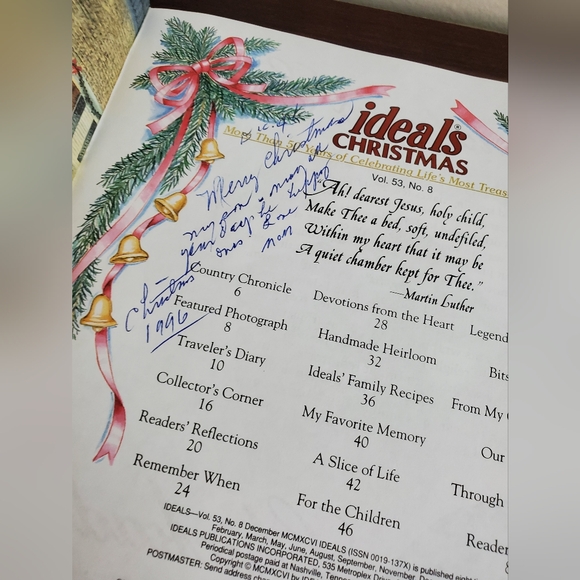 ideals®
CHRISTMAS
More Than 50 Years of Celebrating Life's Most Treas
Vol. 53, No. 8
Merry Christmas
my son & may
your days be
ones
Mom
Christmas
1996
Ah! dearest Jesus, holy child,
Make Thee a bed, soft, undefiled,
Within my heart that it may be
A quiet chamber kept for Thee."
—Martin Luther
Country Chronicle
6
Featured Photograph
8
Traveler's Diary
10
Collector's Corner
16
Readers' Reflections
20
Remember When
24
Devotions from the Heart
28
Handmade Heirloom
32
Ideals' Family Recipes
36
My Favorite Memory
40
A Slice of Life
42
For the Children
46
Legend
Bits
From My
Our
Through
Reader
IDEALS—Vol. 53, No. 8 December MCMXCVI IDEALS (ISSN 0019-137X) is published eight
February, March, May, June, August, September, November, D
IDEALS PUBLICATIONS INCORPORATED, 535 Metroplex Driv
Periodical postage paid at Nashville, Tenne
Copyright © MCMXCVI by IDE
POSTMASTER: Send address cha